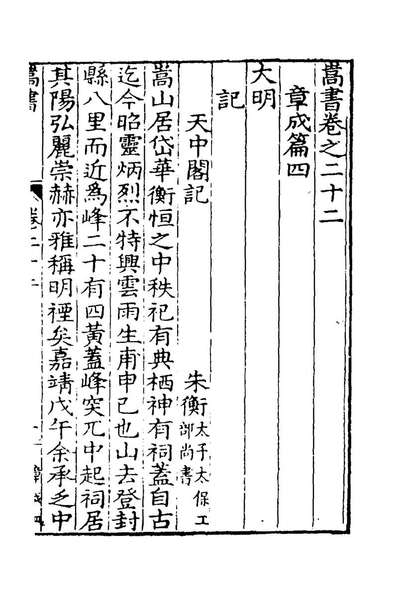 嵩書卷之二十二
章成篇四
大明
記
天中閣記 朱衡太子太保工部尚書
嵩山居岱華衡恒之中秩祀有典栖神有祠蓋自古
迄今昭靈炳烈不特興雲雨生甫申已也山去登封
縣八里而近爲峰二十有四黃蓋峰突兀中起祠居
其陽弘麗崇赫亦雅稱明禋矣嘉靖戊午余承乏中
嵩書 卷二十二 一 章成四